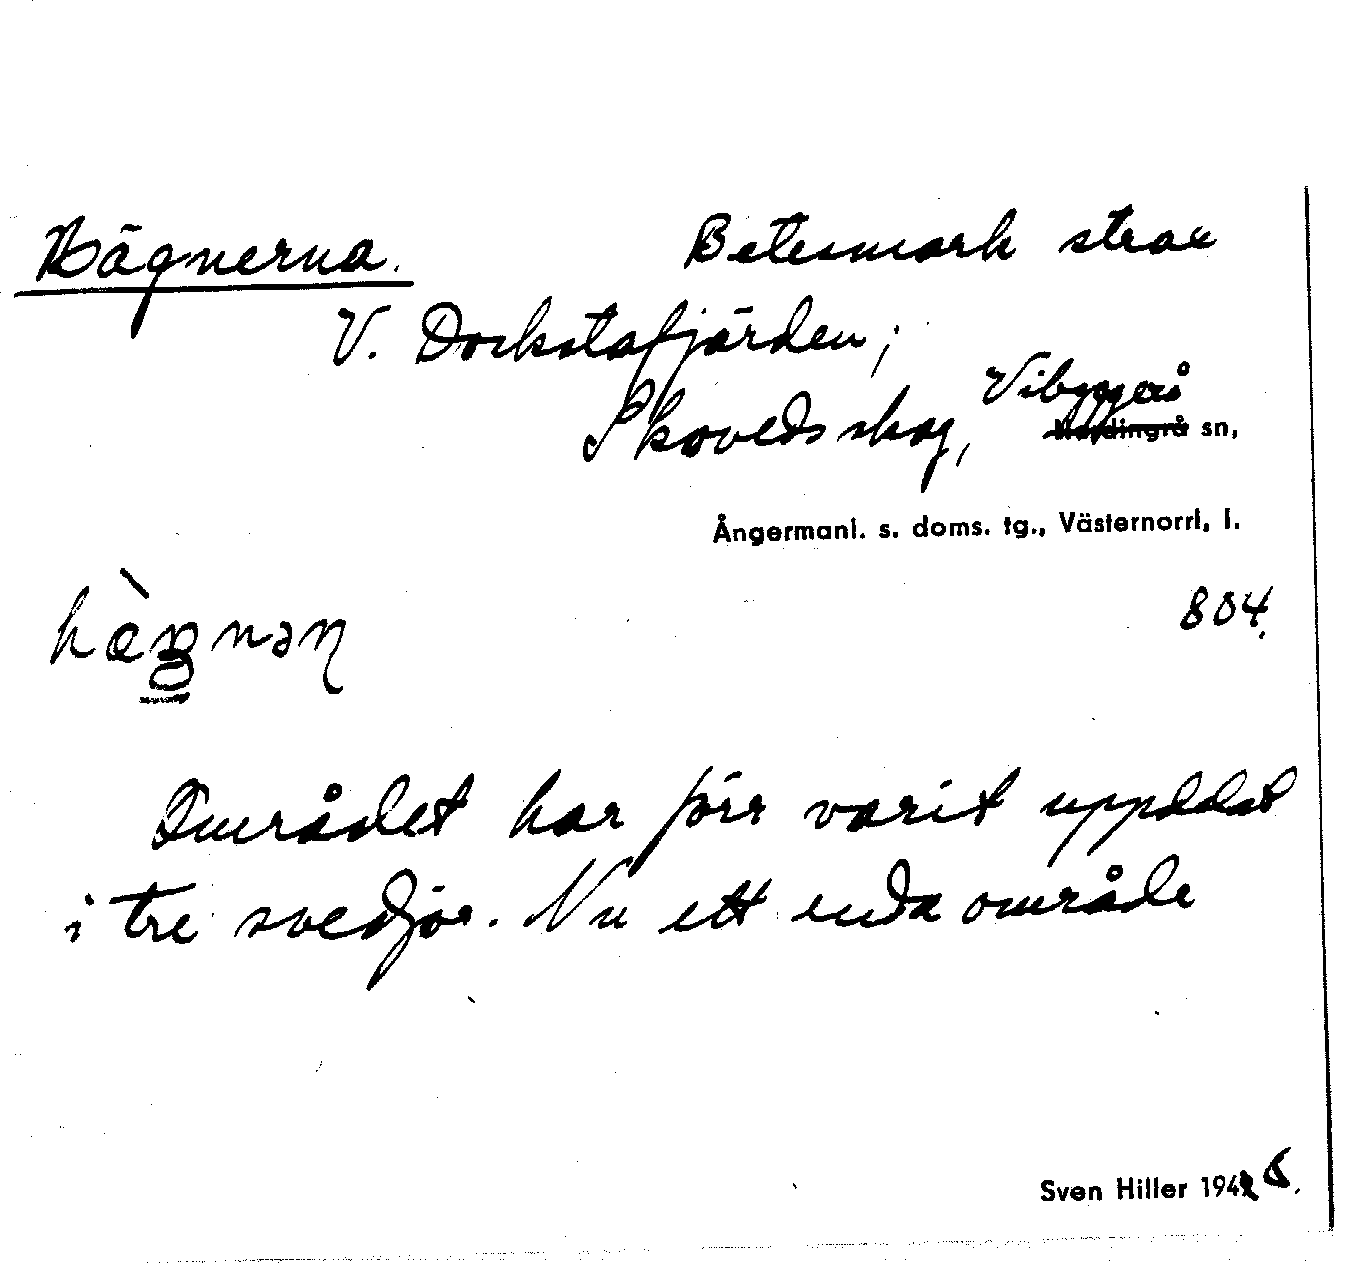 Hägnerna.
Betesmark strax
V. Dockstafjärden;
Skovedsskog, Vibyggerå
Nordingrå sn,
Ångermanl. s. doms. tg., Västernorrl. l.
804.
Området har förr varit uppdelat
i tre svedjor. Nu ett enda område
Sven Hiller 1945.